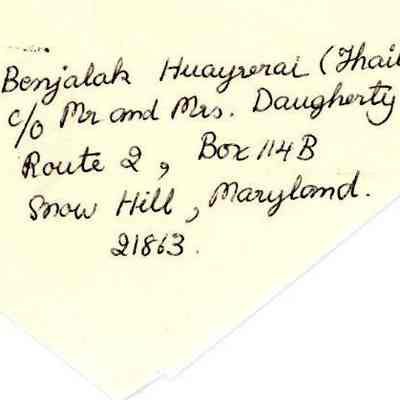 Benjalak Huayrerai (Thail
c/o Mr and Mrs. Daugherty
Route 2, Box 114B
Snow Hill, Maryland.
21863.